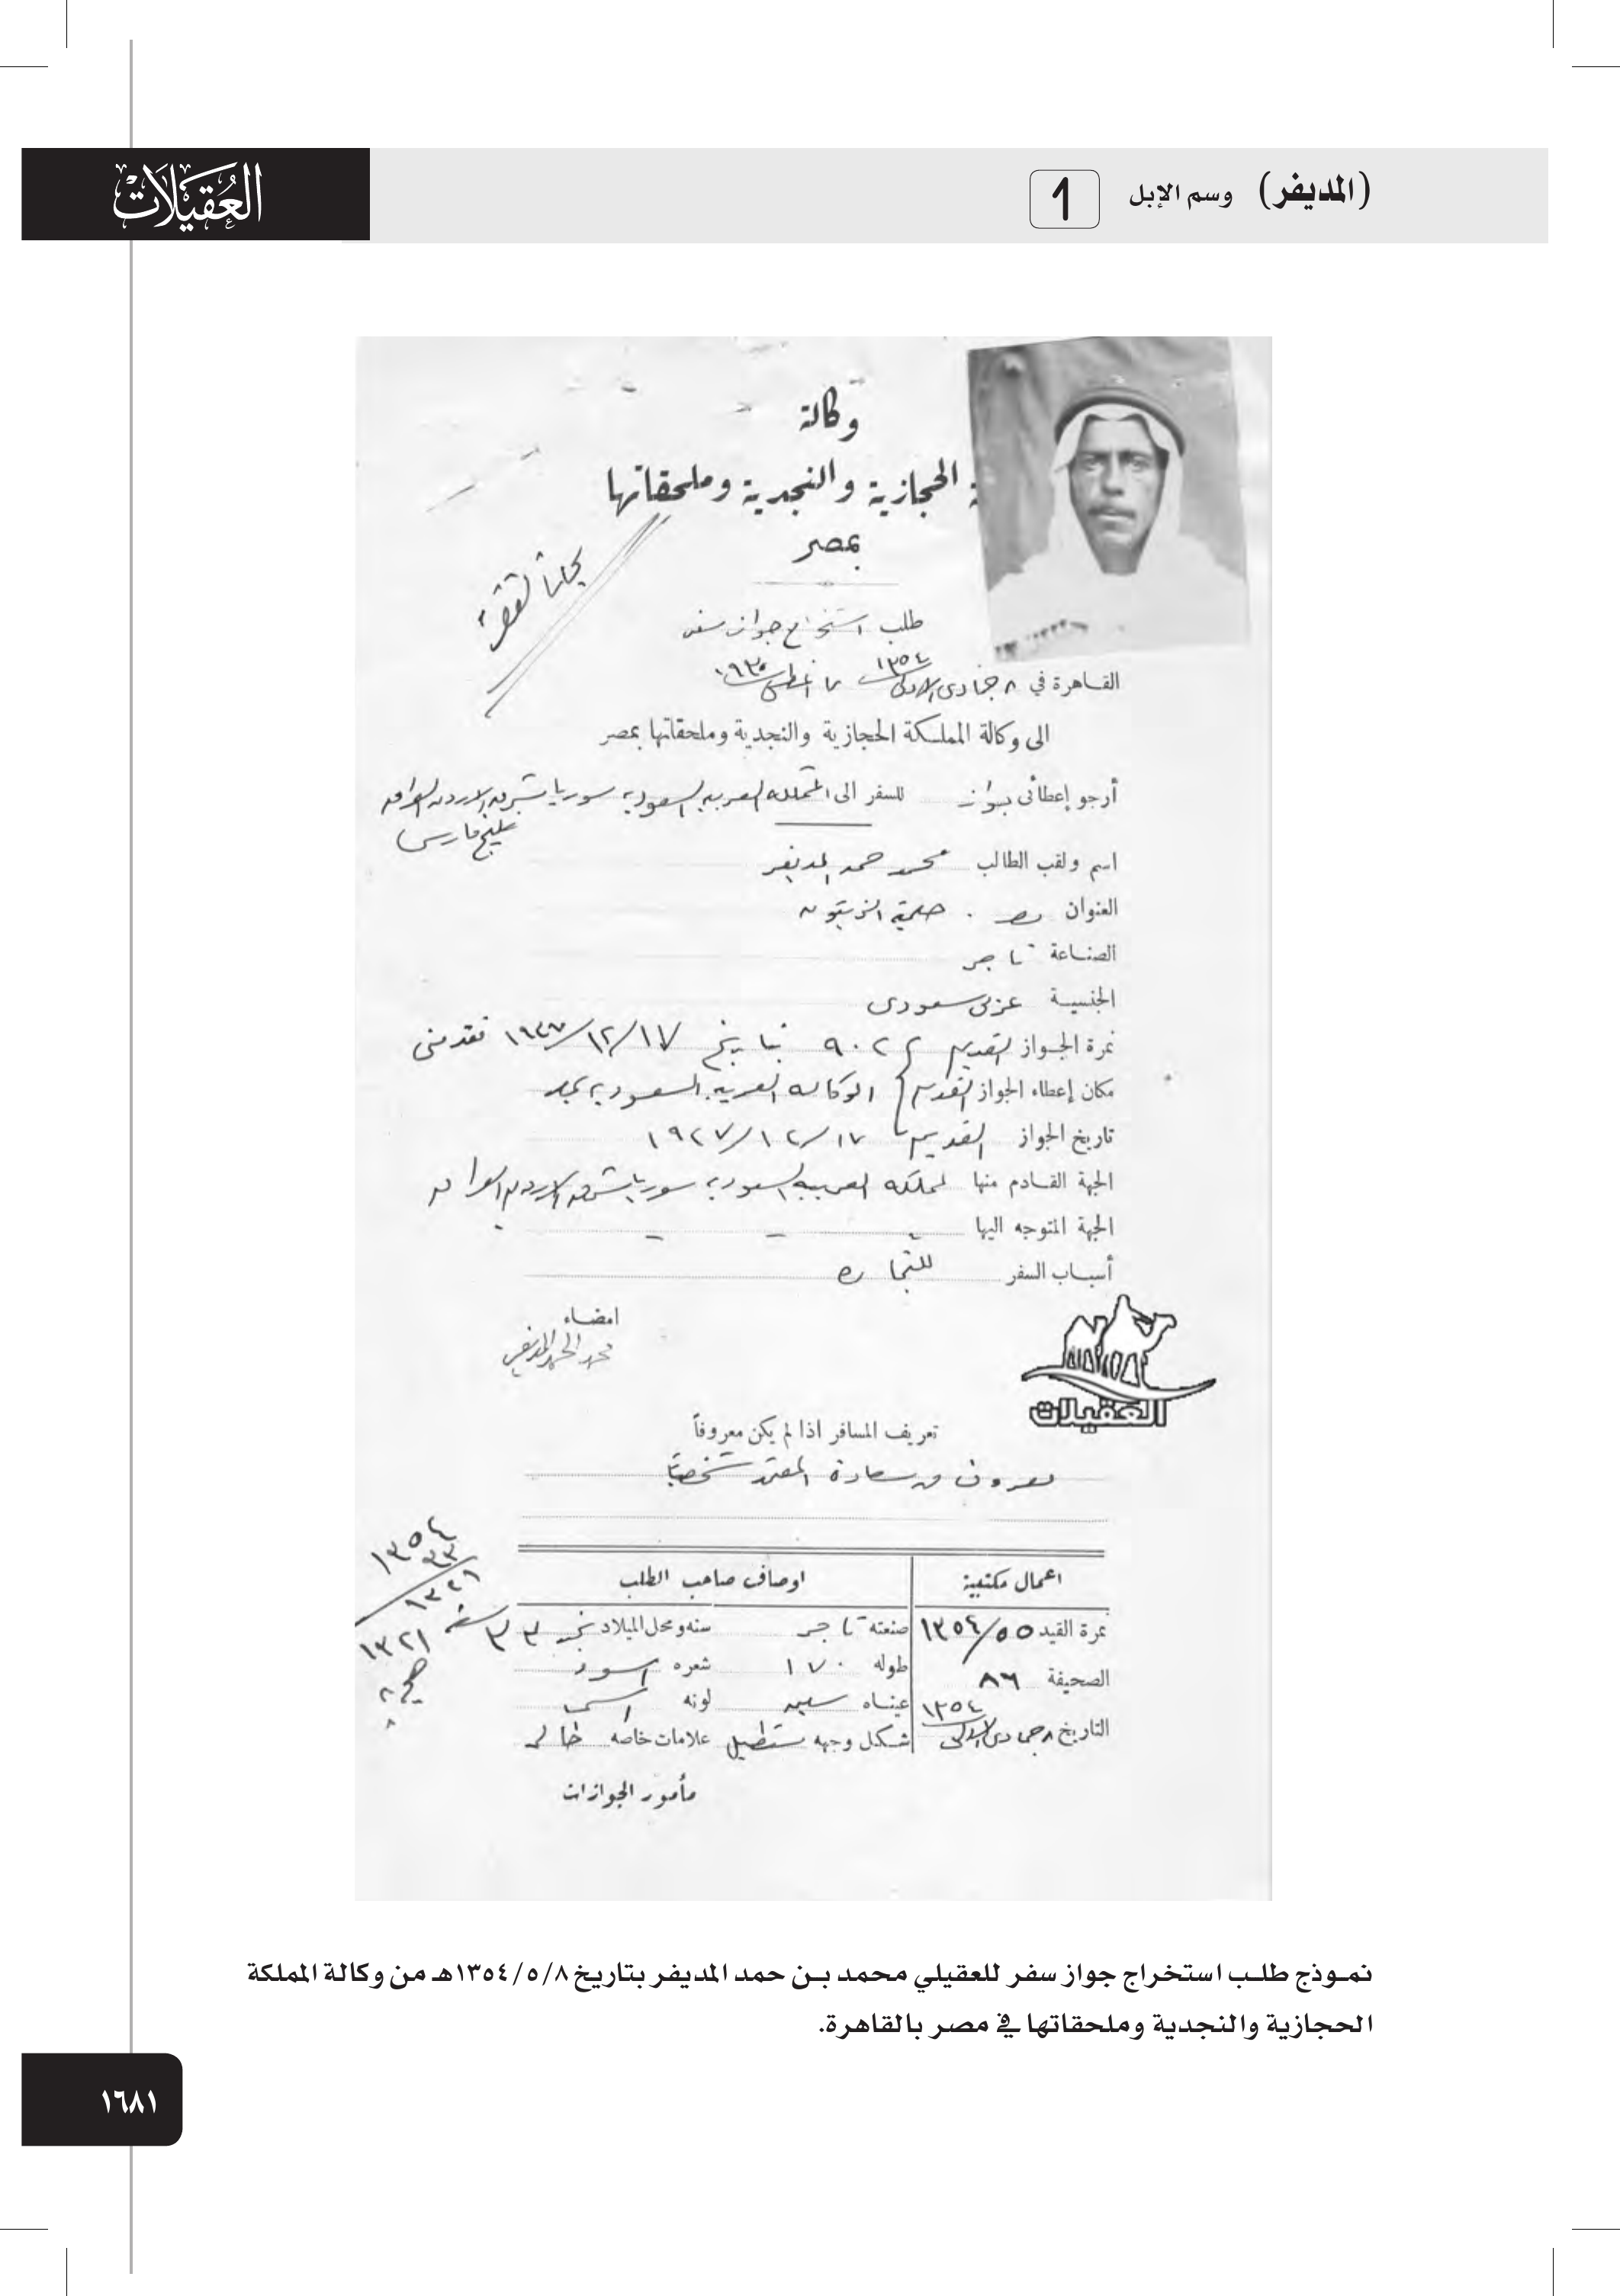 (المديفر) وسم الإبل 1
العُقَيلَاتْ
وكالة
الحجازية والنجدية وملحقاتها
بمصر
مجاناً لفقره
طلب استخراج جواز سفر
القاهرة في ٨ جمادى الاولى ١٣٥٤ ٧ اغسطس
الى وكالة المملكة الحجازية والنجدية وملحقاتها بمصر
أرجو إعطائى جواز للسفر الى المملكه العربيه السعوديه سوريا شرق الاردن العراق
خليج فارس
اسم ولقب الطالب محمد حمد المديفر
العنوان مصر . حلمية الزيتون
الصناعة تاجر
الجنسية عربى سعودى
نمرة الجواز القديم ٩٠٢٢ بتاريخ ١٧/١٢/١٩٢٧ فقد منى
مكان إعطاء الجواز القديم الوكاله العربيه السعوديه بمصر
تاريخ الجواز القديم ١٧/١٢/١٩٢٧
الجهة القادم منها المملكه العربيه السعوديه سوريا شرق الاردن العراق
الجهة المتوجه اليها
أسباب السفر للتجاره
امضاء
محمد الحمد المديفر
العقيلات
تعريف المسافر اذا لم يكن معروفاً
معروف من سعادة المعتمد شخصيًا
اعمال مكتبية اوصاف صاحب الطلب
نمرة القيد ٥٥/١٣٥٤ صنعته تاجر سنه ومحل الميلاد نجد ٣٣ سنه
الصحيفة ٨٦ طوله ١٧٠ شعره اسود
التاريخ ٨ جمادى الاولى ١٣٥٤ عيناه لونه اسمر
شكل وجهه مستطيل علامات خاصه
١٣٥٤
٣٣
١٣٢١
١٣٢١
مأمور الجوازات
نمـوذج طلـب استخراج جواز سفر للعقيلي محمد بـن حمد المديفر بتاريخ ١٣٥٤/٥/٨هـ من وكالة المملكة
الحجازية والنجدية وملحقاتها في مصر بالقاهرة.
١٦٨١